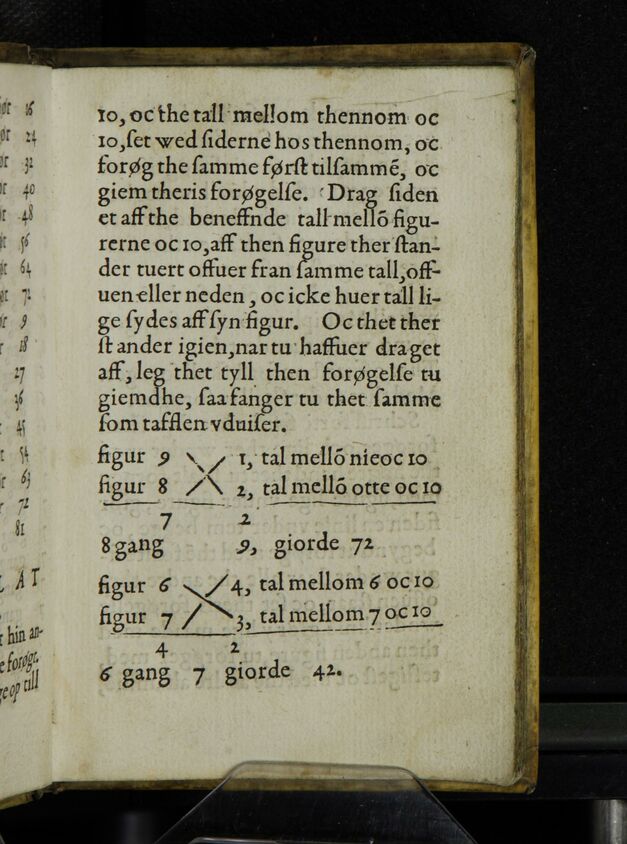 ør 16
ør 24
ør 32
ør 40
ør 48
ør 56
ør 64
ør 72
ør 9
r 18
27
36
45
r 54
r 63
r 72
81
L A T
t hin an-
e forøgt.
ge op till
10, oc the tall mellom thennom oc
10, ſet wed ſiderne hos thennom, oc
forøg the ſamme førſt tilſammē, oc
giem theris forøgelſe. Drag ſiden
et aff the beneffnde tall mellō figu-
rerne oc 10, aff then figure ther ſtan-
der tuert offuer fran ſamme tall, off-
uen eller neden, oc icke huer tall li-
ge ſydes aff ſyn figur. Oc thet ther
ſtander igien, nar tu haffuer draget
aff, leg thet tyll then forøgelſe tu
giemdhe, ſaa fanger tu thet ſamme
ſom tafflen vduiſer.
figur 9 1, tal mellō nie oc 10
figur 8 2, tal mellō otte oc 10
7 2
8 gang 9, giorde 72
figur 6 4, tal mellom 6 oc 10
figur 7 3, tal mellom 7 oc 10
4 2
6 gang 7 giorde 42.